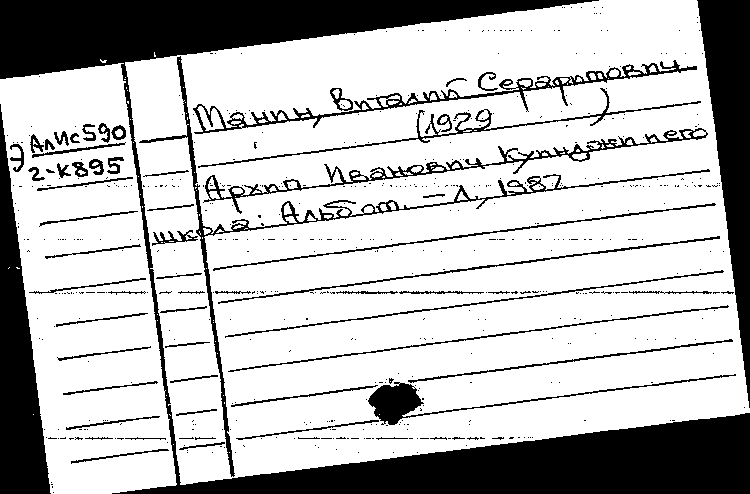 Э АлИс590
2-К895
Манин, Виталий Серафимович
(1929 )
Архип Иванович Куинджи и его
школа: Альбом. – Л., 1987